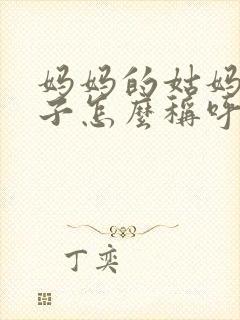 妈妈的姑妈
子怎麼稱呼
丁奕